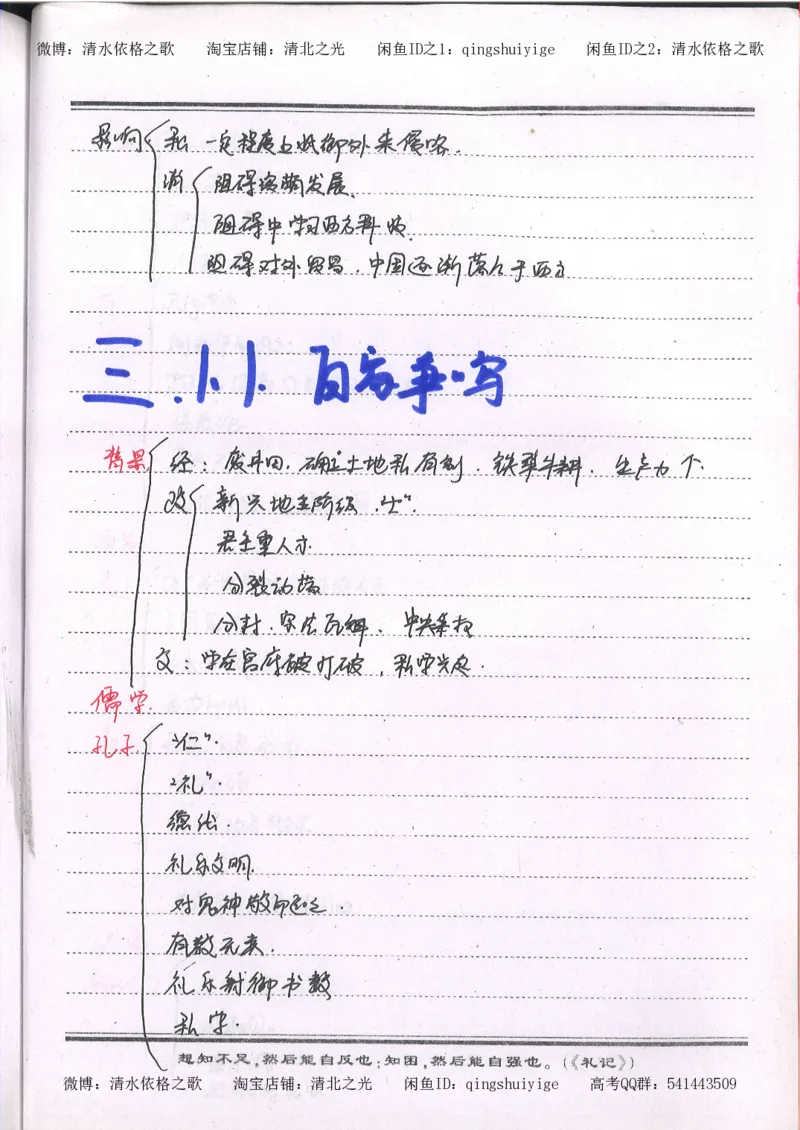 微博：清水依格之歌 淘宝店铺：清北之光 闲鱼ID之1：qingshuiyige 闲鱼ID之2：清水依格之歌
影响 积 一定程度上抵御外来侵略.
消 阻碍资萌发展.
阻碍中学习西方科技.
阻碍对外贸易.中国逐渐落后于西方
三.1.1.百家争鸣
背景 经：废井田.确立土地私有制.铁犁牛耕.生产力个.
政 新兴地主阶级."士".
君主重人才.
分裂动荡
分封.宗法瓦解.中央集权
文：学在官府被打破，私学兴起.
儒学.
孔子. "仁".
"礼".
德化.
礼乐文明.
对鬼神敬而远之.
有教无类.
礼乐射御书数
私学.
想知不足，然后能自反也；知困，然后能自强也。(《礼记》)
微博：清水依格之歌 淘宝店铺：清北之光 闲鱼ID：qingshuiyige 高考QQ群：541443509